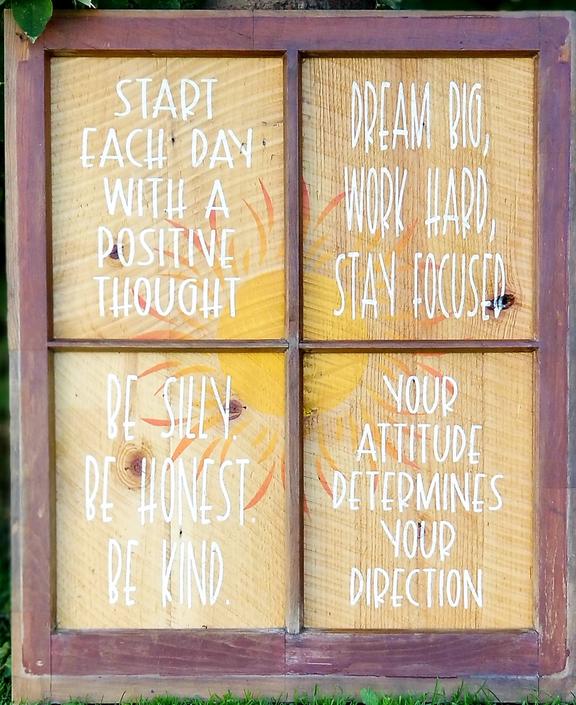 START
EACH DAY
WITH A
POSITIVE
THOUGHT
DREAM BIG,
WORK HARD,
STAY FOCUSED
BE SILLY.
BE HONEST.
BE KIND.
YOUR
ATTITUDE
DETERMINES
YOUR
DIRECTION